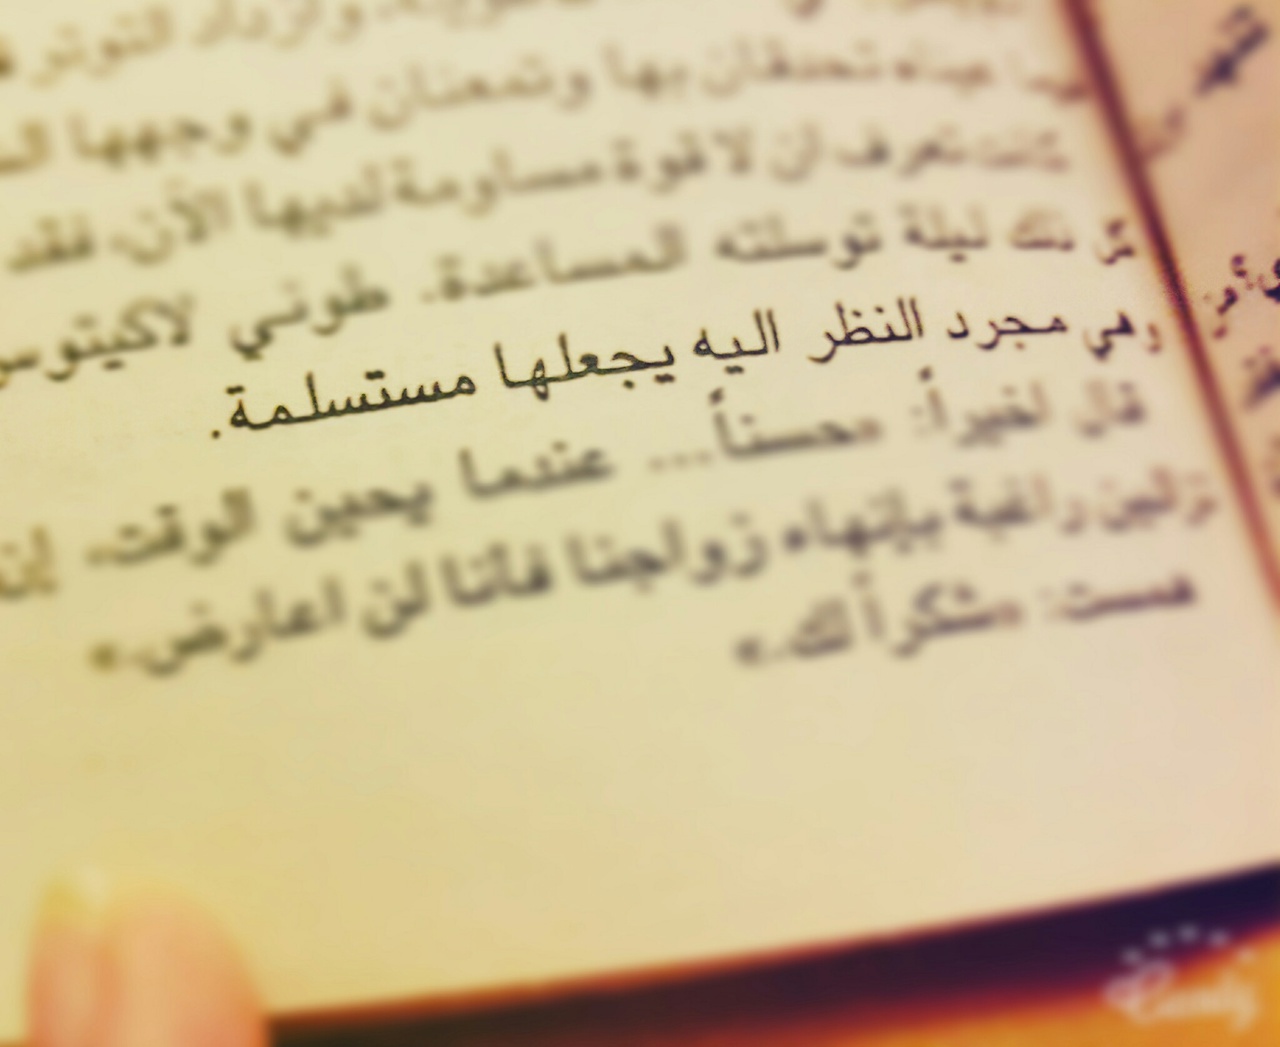 وازداد التوتر
عيناه تحدقان بها وتمعنان في وجهها
كانت تعرف ان لا قوة مساومة لديها الآن، فقد
ليلة توسلته المساعدة. طوني لاكيتوس
وهي مجرد النظر اليه يجعلها مستسلمة.
قال اخيراً: «حسناً... عندما يحين الوقت، إن
تزالين راغبة بإنهاء زواجنا فأنا لن اعارض.»
همست: «شكراً لك.»
Candy